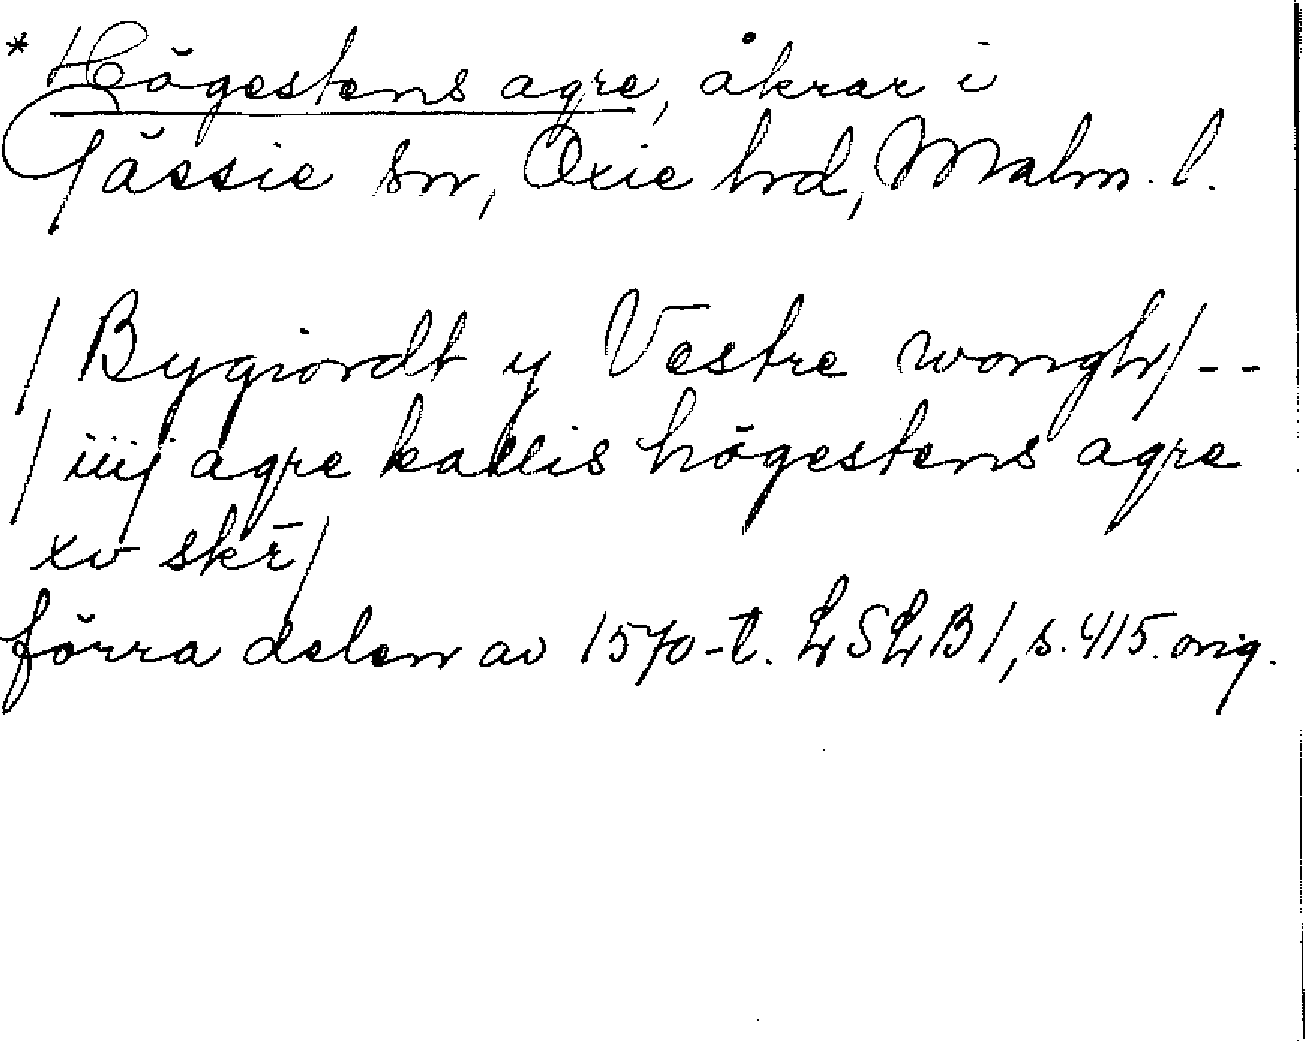 * Högestens agre, åkrar i
Gässie sn, Oxie hrd, Malm. l.
/ Bygiordt y Vestre wongh/ --
/ iiij agre kallis högestens agre
xv skr̄/
förra delen av 1570-t. LSLB 1, s. 415. orig.